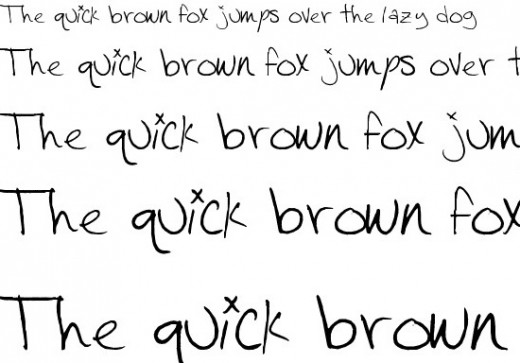 The quick brown fox jumps over the lazy dog
The quick brown fox jumps over t
The quick brown fox jum
The quick brown fox
The quick brown